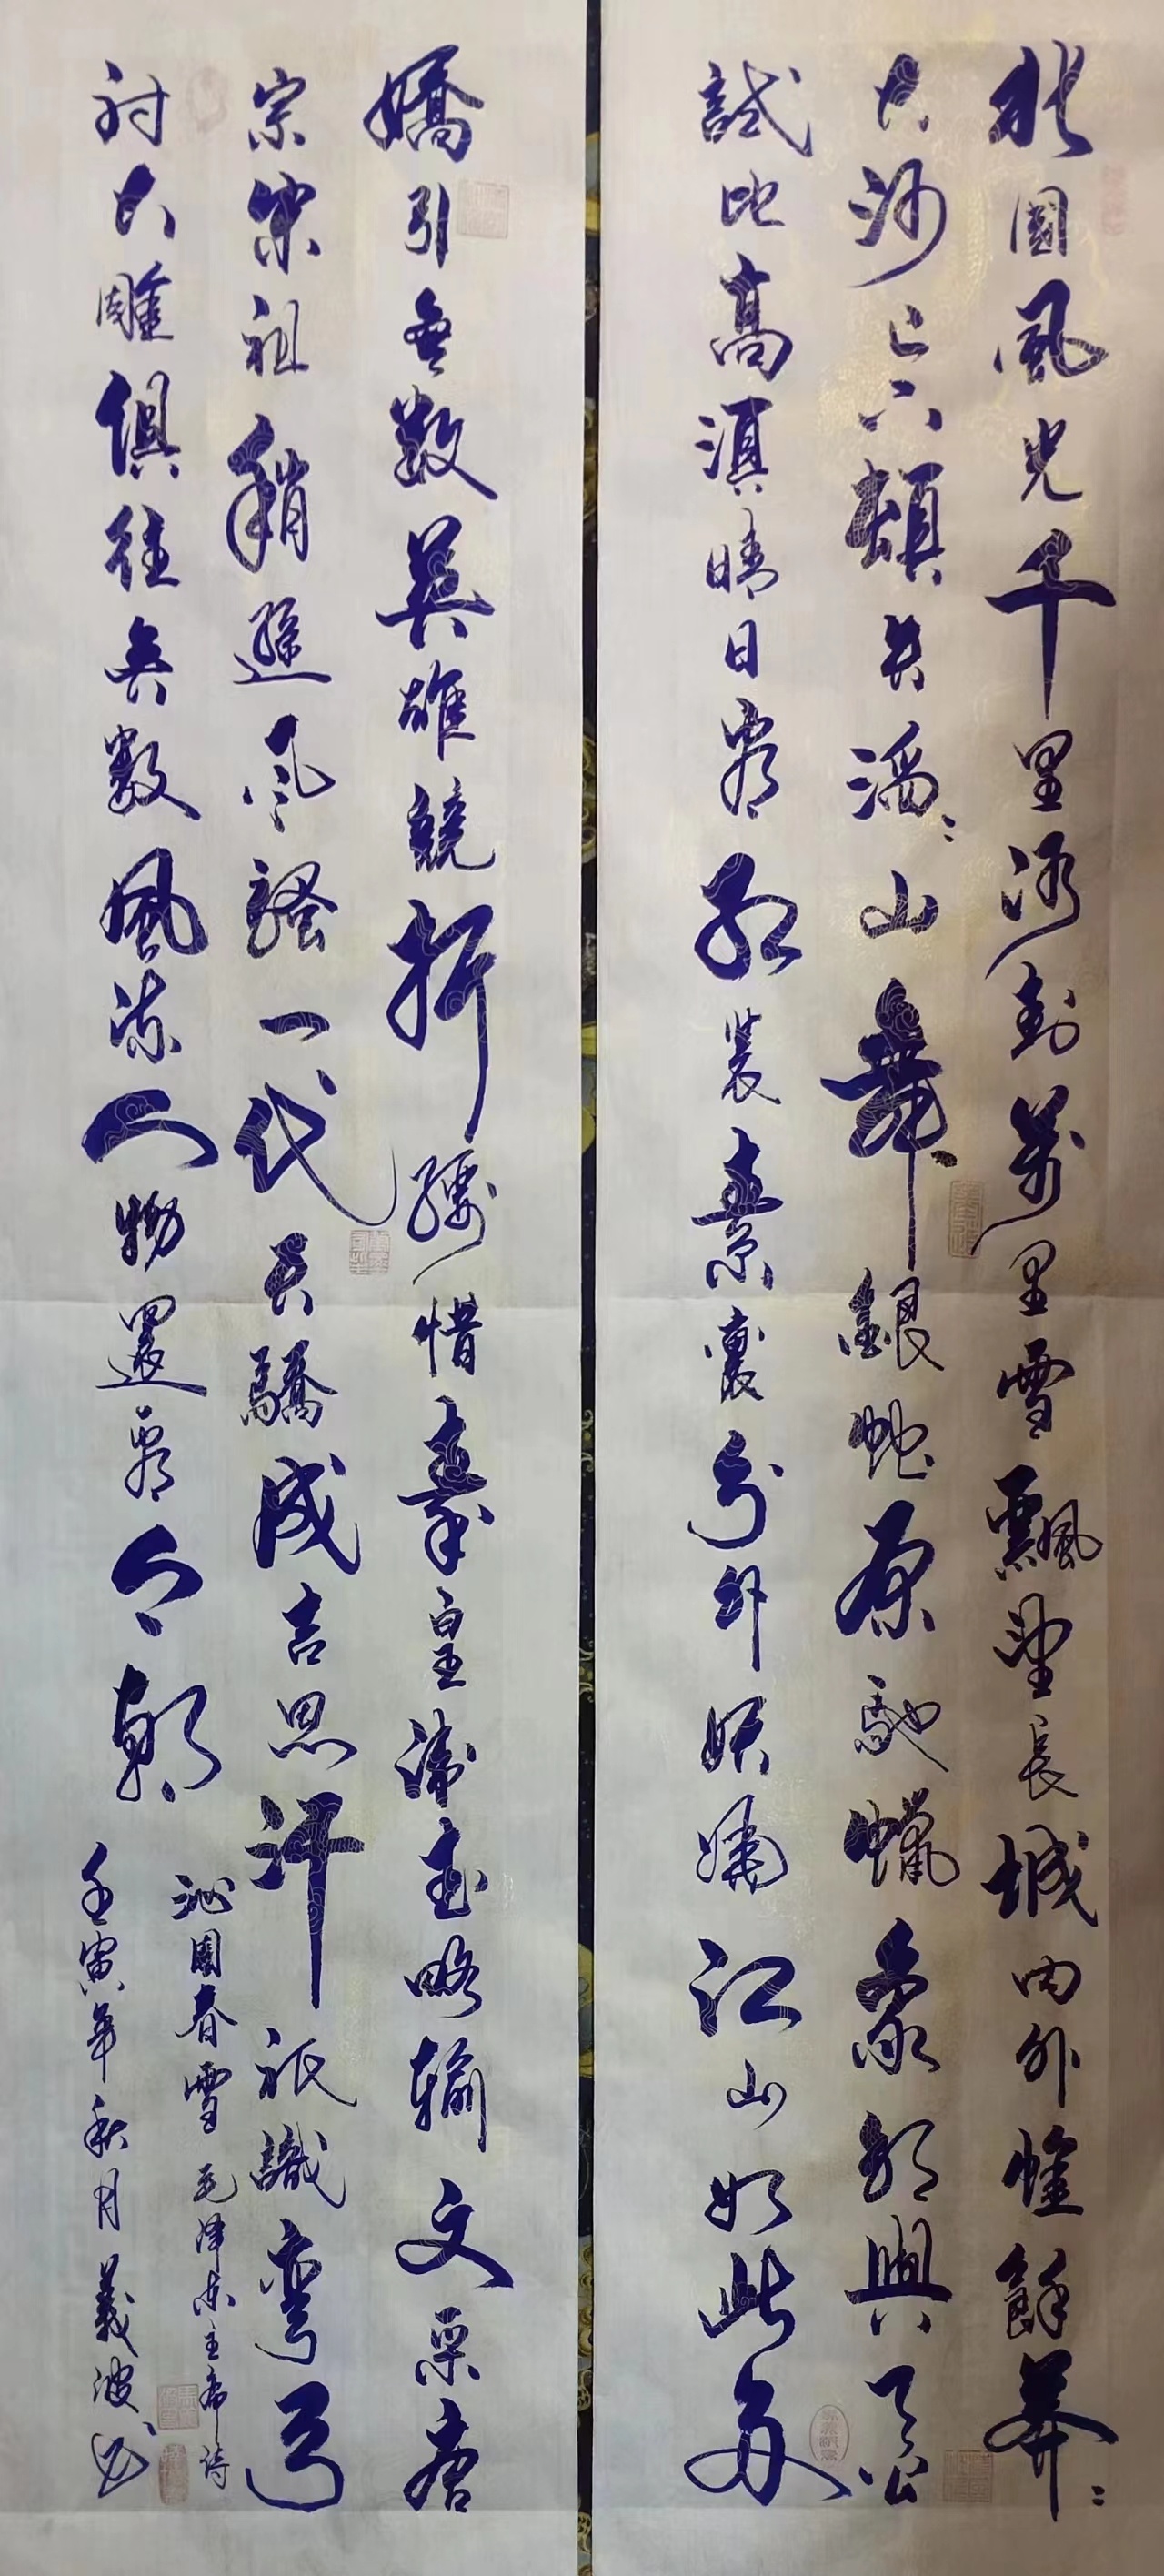 北國風光千里冰封萬里雪飄望長城內外惟餘莽々
大河上下頓失滔々山舞銀蛇原馳蠟象欲與天公
試比高須晴日看紅裝素裹分外妖嬈江山如此多
嬌引無數英雄競折腰惜秦皇漢武略輸文采唐
宗宋祖稍遜风騷一代天驕成吉思汗祇識彎弓
射大雕俱往矣數風流人物還看今朝
沁園春雪 毛泽东主席詩
壬寅年秋月義波书